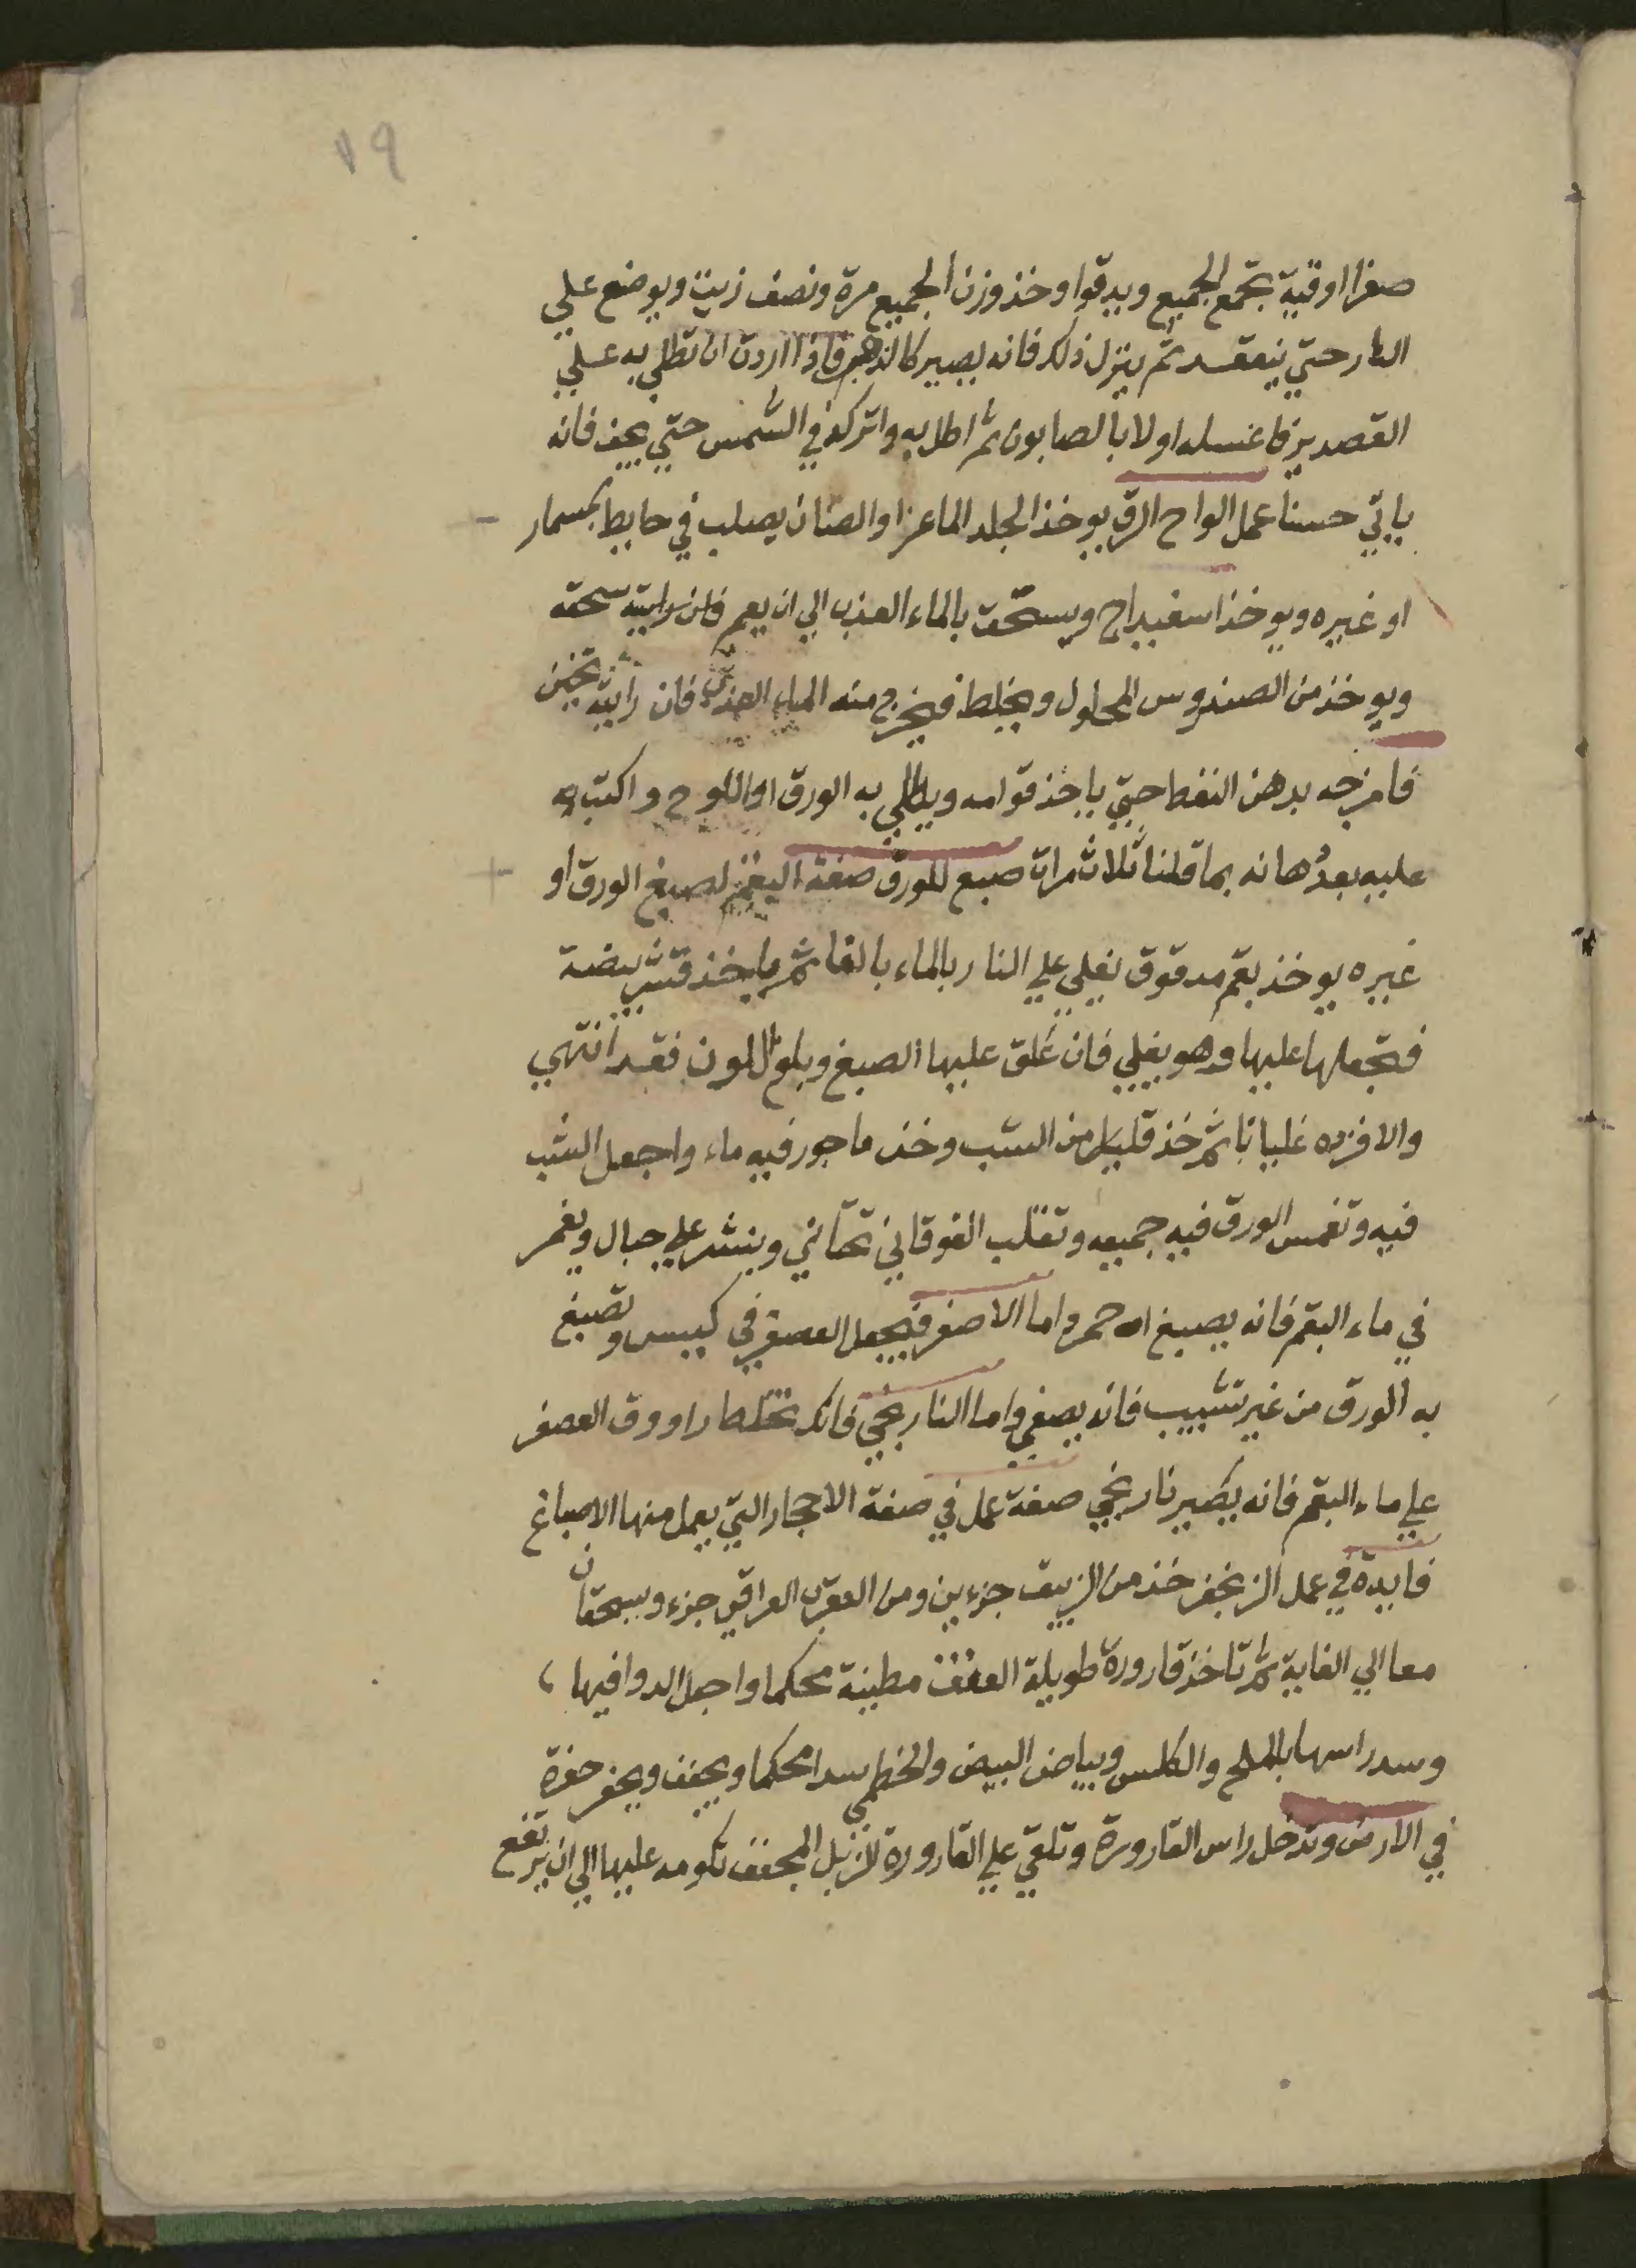 ١٩
صفرا اوقية تجمع الجميع ويدقوا وخذ وزن الجميع مرة ونصف زيت ويوضع علي
النار حتي ينعقد ثم ينزل ذلك فانه يصير كالذهب فاذا اردت ان تطلي به علي
القصدير فاغسله اولا بالصابون ثم اطل به واتركه في الشمس حتي يجف فانه
ياتي حسنا عمل الواح الرق يوخذ الجلد الماعز او الضان يصلب في حايط بمسمار
او غيره ويوخذ اسفيداج ويسحق بالماء العذب الي ان يعم فان رايته سحقه
ويوخذ من الصندروس المحلول ويخلط فيخرج منه الماء العذب فان رايته تخين
فامزجه بدهن النفط حتي ياخذ قوامه ويطلي به الورق او اللوح واكتب
عليه بعد دهانه بما قلنا ثلاث مرات صبغ للورق صفة البقم لصبغ الورق او
غيره يوخذ بقم مدقوق يغلي علي النار بالماء بالغا ثم ياخذ قشر بيضة
فتجعلها عليها وهو يغلي فان علق عليها الصبغ وبلوغ اللون فقد انتهي
والا فزده غليانا ثم خذ قليل من الشب وخذ ماجور فيه ماء واجعل الشب
فيه وتغمس الورق فيه جميعه وتقلب الفوقاني تحتاني وينشر علي حبال ويغمر
في ماء البقم فانه يصبغ احمر واما الاصفر فيجعل العصفر في كيس وتصبغ
به الورق من غير تشبيب فانه يصفي واما النارنجي فانك تخلط راووق العصفر
علي ماء البقم فانه يصير نارنجي صفة عمل في صفة الاحجار التي يعمل منها الاصباغ
فايدة في عمل الزنجفر خذ من الزيبق جزءين ومن العقرب العراقي جزء ويسحقان
معا الي الغاية ثم تاخذ قارورة طويلة العنق مطينة محكما واجعل الدوا فيها
وسد راسها بالملح والكلس وبياض البيض والخطمي سدا محكما ويجفف ويحفر حفرة
في الارض وتدخل راس القارورة وتلقي علي القارورة الزبل المجفف تكومه عليها الي ان يرتفع